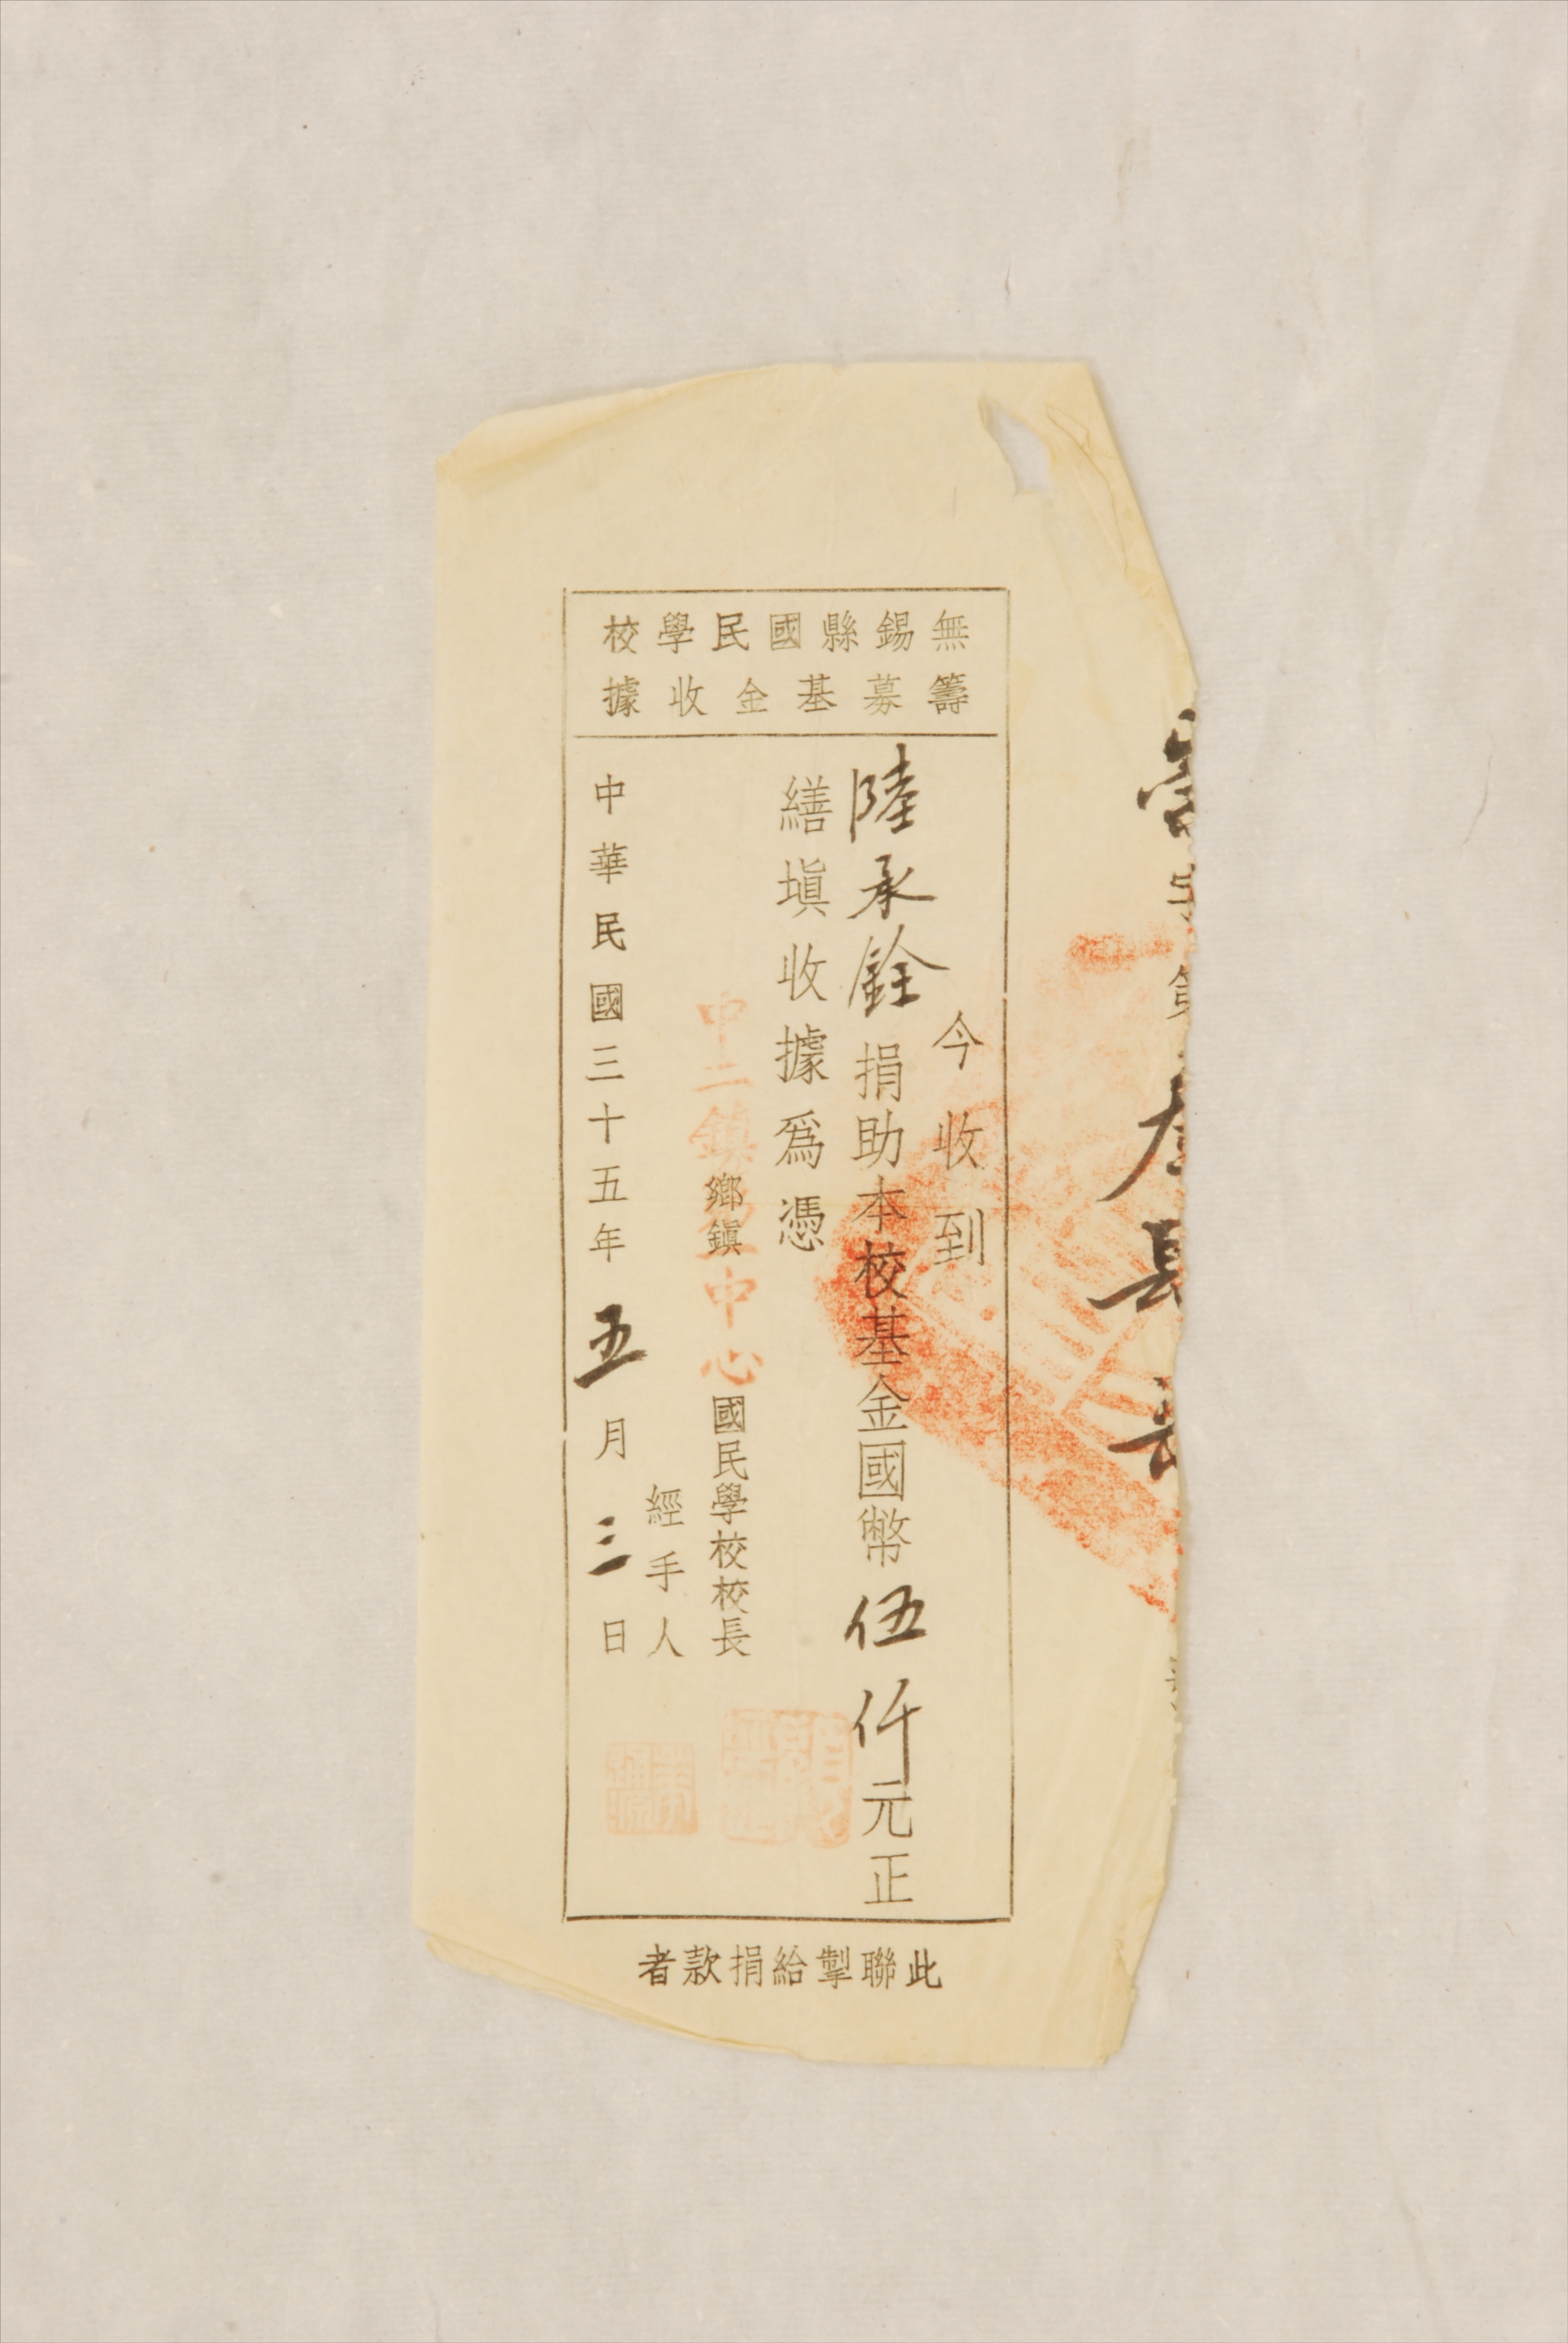 無錫縣國民學校
籌募基金收據
今收到
陸承銓捐助本校基金國幣伍仟元正
繕塡收據爲憑
中二鎮鄉鎭中心國民學校校長
經手人
中華民國三十五年五月三日
此聯掣給捐款者